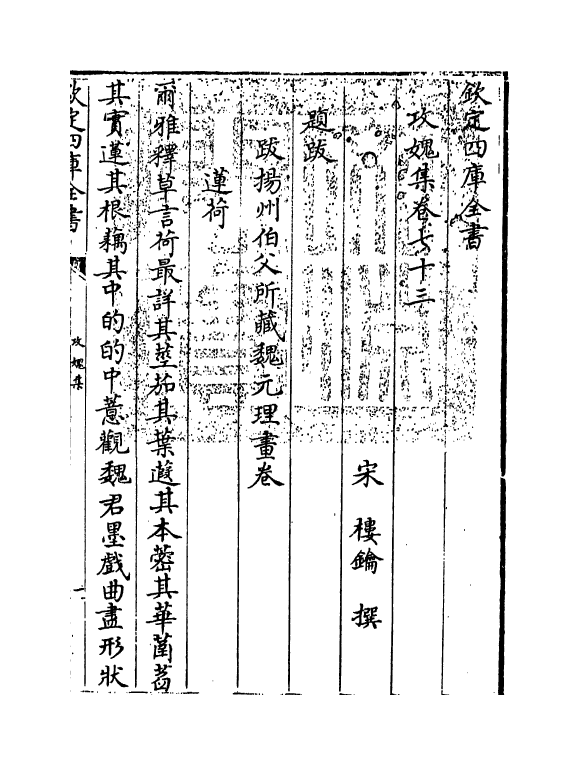 欽定四庫全書
攻媿集卷七十三
宋 樓鑰 撰
題跋
跋揚州伯父所藏魏元理畫卷
蓮荷
爾雅釋草言荷最詳其莖茄其葉蕸其本蔤其華菡萏
其實蓮其根藕其中的的中薏觀魏君墨戲曲盡形狀
欽定四庫全書
攻媿集
一